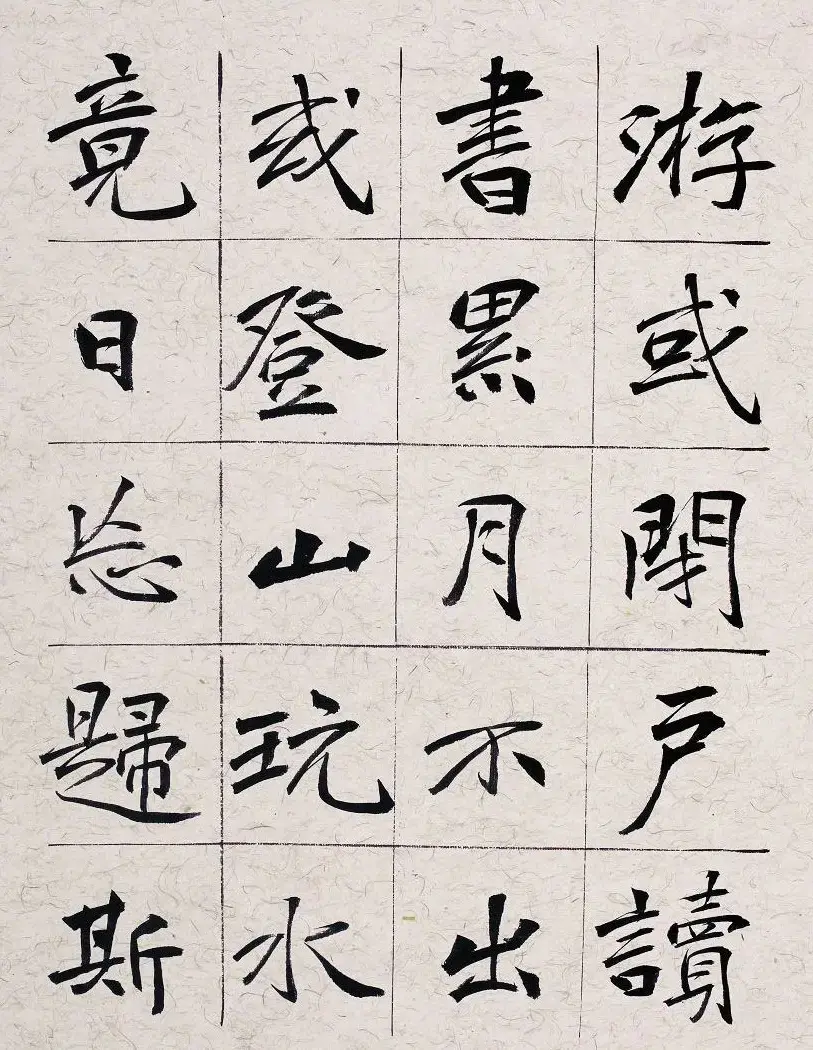 游或閉戶讀
書累月不出
或登山玩水
竟日忘歸斯